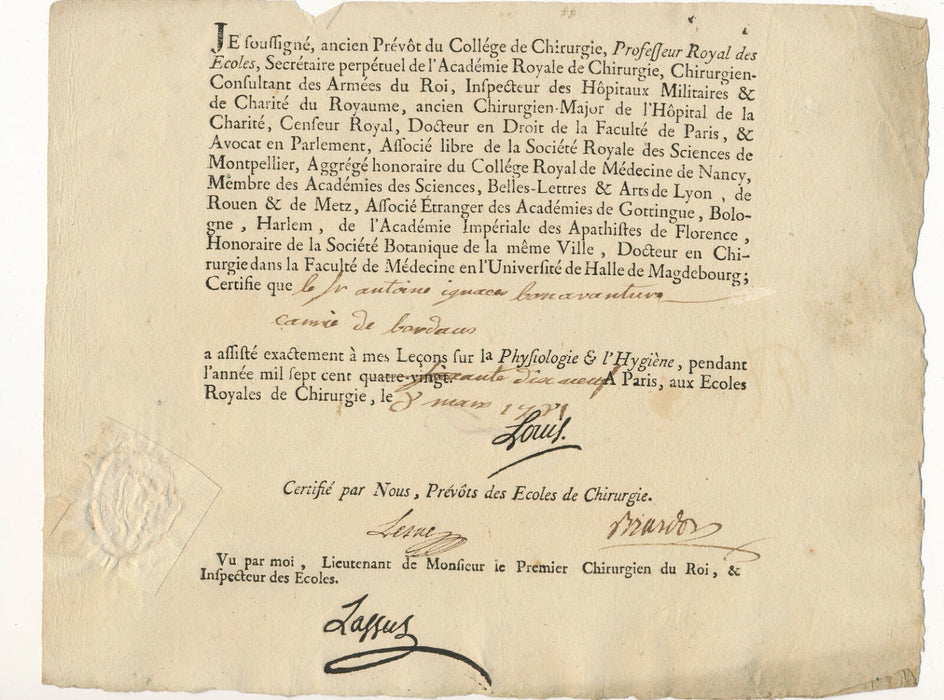 JE souſſigné, ancien Prévôt du Collége de Chirurgie, Profeſſeur Royal des
Ecoles, Secrétaire perpétuel de l'Académie Royale de Chirurgie, Chirurgien-
Conſultant des Armées du Roi, Inſpecteur des Hôpitaux Militaires &
de Charité du Royaume, ancien Chirurgien-Major de l'Hôpital de la
Charité, Cenſeur Royal, Docteur en Droit de la Faculté de Paris, &
Avocat en Parlement, Aſſocié libre de la Société Royale des Sciences de
Montpellier, Aggrégé honoraire du Collége Royal de Médecine de Nancy,
Membre des Académies des Sciences, Belles-Lettres & Arts de Lyon, de
Rouen & de Metz, Aſſocié Étranger des Académies de Gottingue, Bolo-
gne, Harlem, de l'Académie Impériale des Apathiſtes de Florence,
Honoraire de la Société Botanique de la même Ville, Docteur en Chi-
rurgie dans la Faculté de Médecine en l'Univerſité de Halle de Magdebourg;
Certifie que le Sr antoine ignace bonavanture
de bordaus
a aſſiſté exactement à mes Leçons ſur la Phyſiologie & l'Hygiène, pendant
l'année mil ſept cent quatre-vingt. ſoixante dix neuf A Paris, aux Ecoles
Royales de Chirurgie, le 8 mars
Louis.
Certifié par Nous, Prévôts des Ecoles de Chirurgie.
Vu par moi, Lieutenant de Monſieur le Premier Chirurgien du Roi, &
Inſpecteur des Ecoles.
Lassus